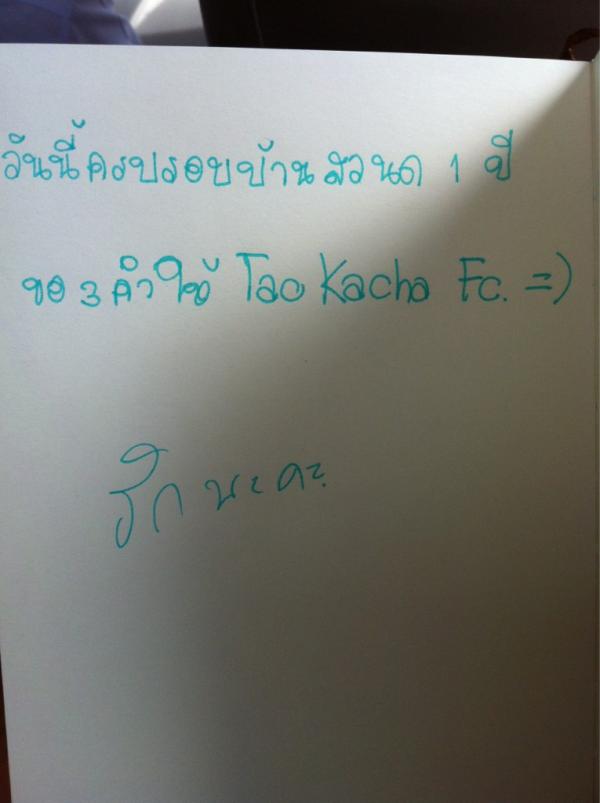 วันนี้ครบรอบบ้านสวนด 1 ปี
ขอ 3 คำให้ Tao Kacha Fc. =)
รักนะคะ.